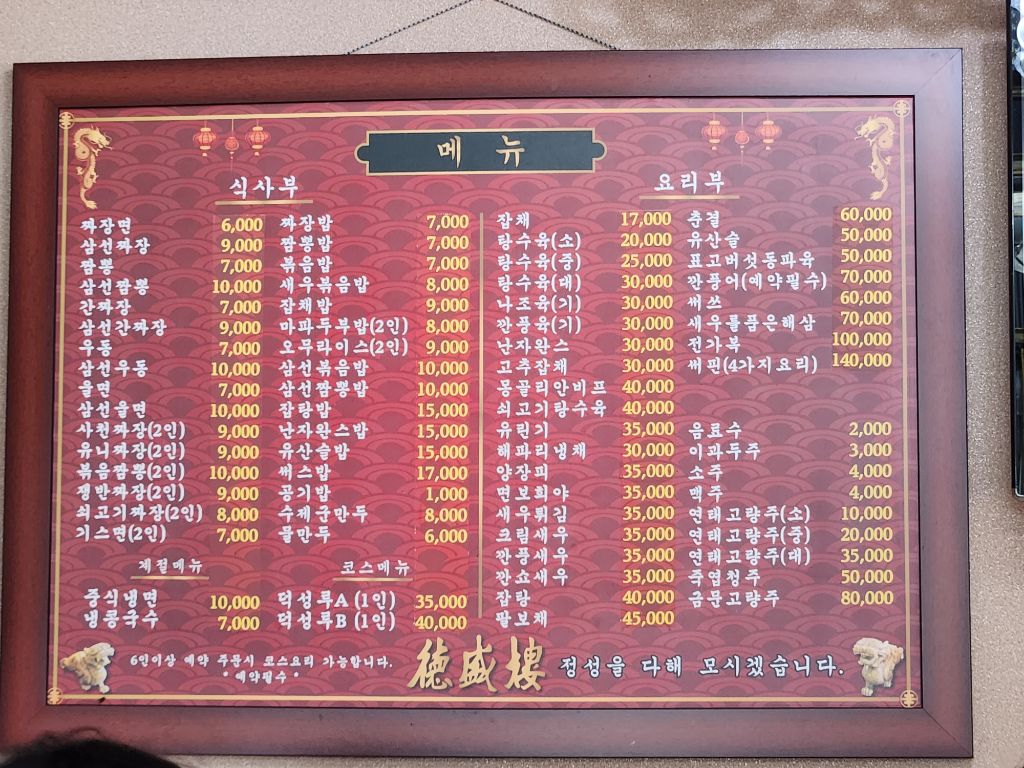 메 뉴
식사부
짜장면 6,000
삼선짜장 9,000
짬뽕 7,000
삼선짬뽕 10,000
간짜장 7,000
삼선간짜장 9,000
우동 7,000
삼선우동 10,000
울면 7,000
삼선울면 10,000
사천짜장(2인) 9,000
유니짜장(2인) 9,000
볶음짬뽕(2인) 10,000
쟁반짜장(2인) 9,000
쇠고기짜장(2인) 8,000
기스면(2인) 7,000
짜장밥 7,000
짬뽕밥 7,000
볶음밥 7,000
새우볶음밥 8,000
잡채밥 9,000
마파두부밥(2인) 8,000
오무라이스(2인) 9,000
삼선볶음밥 10,000
삼선짬뽕밥 10,000
잡탕밥 15,000
난자완스밥 15,000
유산슬밥 15,000
써스밥 17,000
공기밥 1,000
수제군만두 8,000
물만두 6,000
계절메뉴
중식냉면 10,000
냉콩국수 7,000
코스메뉴
덕성루A (1인) 35,000
덕성루B (1인) 40,000
요리부
잡채 17,000
탕수육(소) 20,000
탕수육(중) 25,000
탕수육(대) 30,000
나조육(기) 30,000
깐풍육(기) 30,000
난자완스 30,000
고추잡채 30,000
몽골리안비프 40,000
쇠고기탕수육 40,000
유린기 35,000
해파리냉채 30,000
양장피 35,000
면보희야 35,000
새우튀김 35,000
크림새우 35,000
깐풍새우 35,000
깐쇼새우 35,000
잡탕 40,000
팔보채 45,000
춘결 60,000
유산슬 50,000
표고버섯동파육 50,000
깐풍어(예약필수) 70,000
써쓰 60,000
새우를품은해삼 70,000
전가복 100,000
써핀(4가지요리) 140,000
음료수 2,000
이과두주 3,000
소주 4,000
맥주 4,000
연태고량주(소) 10,000
연태고량주(중) 20,000
연태고량주(대) 35,000
죽엽청주 50,000
금문고량주 80,000
6인이상 예약 주문시 코스요리 가능합니다.
* 예약필수 *
德盛樓 정성을 다해 모시겠습니다.